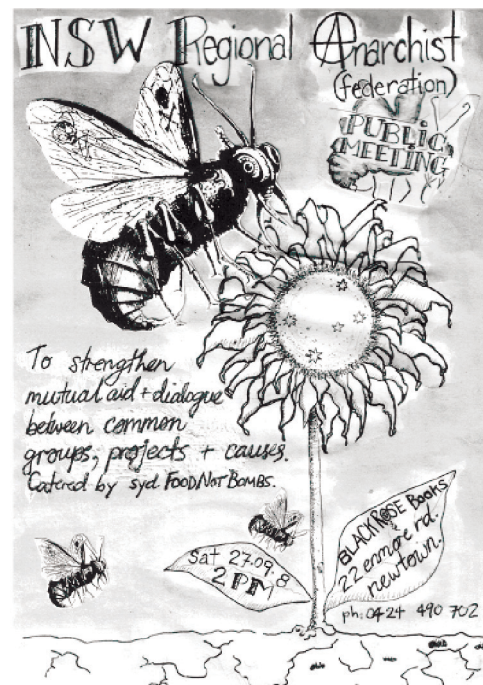 NSW Regional Anarchist
(federation)
PUBLIC
MEETING
To strengthen
mutual aid + dialogue
between common
groups, projects + causes.
Catered by syd FOOD NOT BOMBS.
Sat 27.09.8
2PM
BLACKROSE Books
22 enmore rd.
newtown.
ph: 0424 490 702